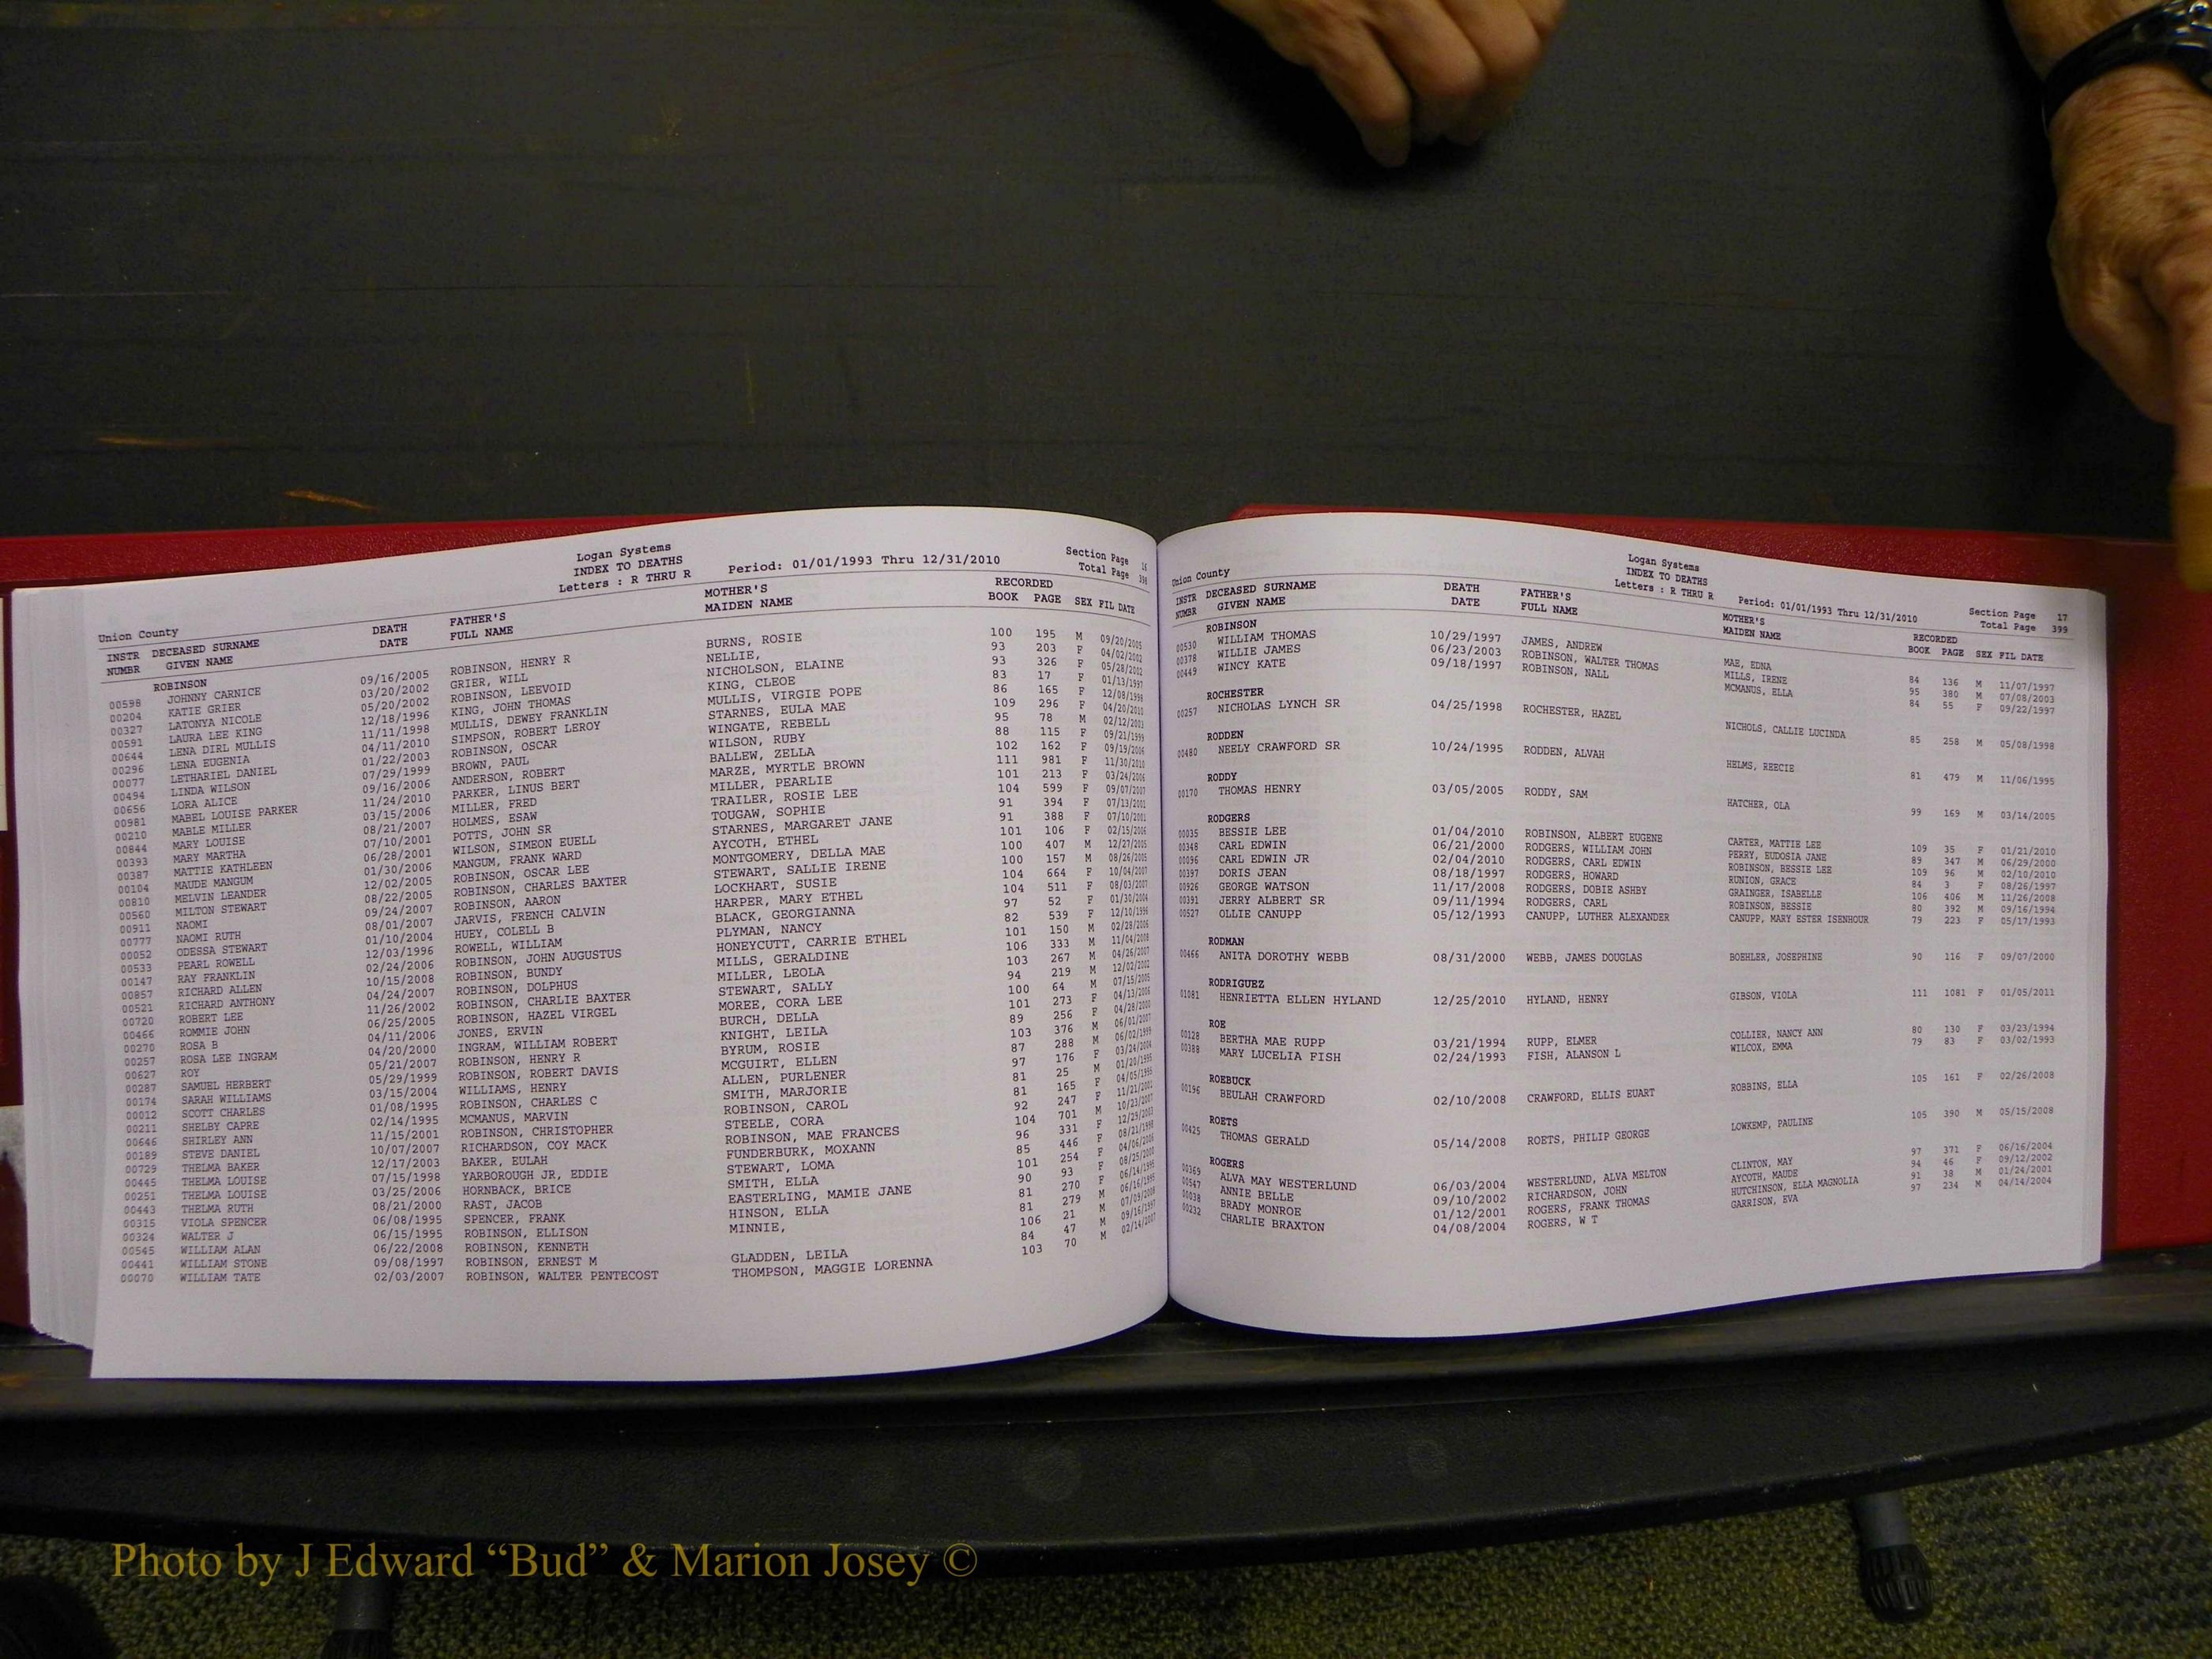 Logan Systems
INDEX TO DEATHS
Letters : R THRU R
Period: 01/01/1993 Thru 12/31/2010
Section Page 16
Total Page 398
Union County
INSTR DECEASED SURNAME DEATH FATHER'S MOTHER'S RECORDED
NUMBR GIVEN NAME DATE FULL NAME MAIDEN NAME BOOK PAGE SEX FIL DATE
ROBINSON
00598 JOHNNY CARNICE 09/16/2005 ROBINSON, HENRY R BURNS, ROSIE 100 195 M 09/20/2005
00204 KATIE GRIER 03/20/2002 GRIER, WILL NELLIE, 93 203 F 04/02/2002
00327 LATONYA NICOLE 05/20/2002 ROBINSON, LEEVOID NICHOLSON, ELAINE 93 326 F 05/28/2002
00591 LAURA LEE KING 12/18/1996 KING, JOHN THOMAS KING, CLEOE 83 17 F 01/13/1997
00644 LENA DIRL MULLIS 11/11/1998 MULLIS, DEWEY FRANKLIN MULLIS, VIRGIE POPE 86 165 F 12/08/1998
00296 LENA EUGENIA 04/11/2010 SIMPSON, ROBERT LEROY STARNES, EULA MAE 109 296 F 04/20/2010
00077 LETHARIEL DANIEL 01/22/2003 ROBINSON, OSCAR WINGATE, REBELL 95 78 M 02/12/2003
00494 LINDA WILSON 07/29/1999 BROWN, PAUL WILSON, RUBY 88 115 F 09/21/1999
00656 LORA ALICE 09/16/2006 ANDERSON, ROBERT BALLEW, ZELLA 102 162 F 09/19/2006
00981 MABEL LOUISE PARKER 11/24/2010 PARKER, LINUS BERT MARZE, MYRTLE BROWN 111 981 F 11/30/2010
00210 MABLE MILLER 03/15/2006 MILLER, FRED MILLER, PEARLIE 101 213 F 03/24/2006
00844 MARY LOUISE 08/21/2007 HOLMES, ESAW TRAILER, ROSIE LEE 104 599 F 09/07/2007
00393 MARY MARTHA 07/10/2001 POTTS, JOHN SR TOUGAW, SOPHIE 91 394 F 07/13/2001
00387 MATTIE KATHLEEN 06/28/2001 WILSON, SIMEON EUELL STARNES, MARGARET JANE 91 388 F 07/10/2001
00104 MAUDE MANGUM 01/30/2006 MANGUM, FRANK WARD AYCOTH, ETHEL 101 106 F 02/15/2006
00810 MELVIN LEANDER 12/02/2005 ROBINSON, OSCAR LEE MONTGOMERY, DELLA MAE 100 407 M 12/27/2005
00560 MILTON STEWART 08/22/2005 ROBINSON, CHARLES BAXTER STEWART, SALLIE IRENE 100 157 M 08/26/2005
00911 NAOMI 09/24/2007 ROBINSON, AARON LOCKHART, SUSIE 104 664 F 10/04/2007
00777 NAOMI RUTH 08/01/2007 JARVIS, FRENCH CALVIN HARPER, MARY ETHEL 104 511 F 08/03/2007
00052 ODESSA STEWART 01/10/2004 HUEY, COLELL B BLACK, GEORGIANNA 97 52 F 01/30/2004
00533 PEARL ROWELL 12/03/1996 ROWELL, WILLIAM PLYMAN, NANCY 82 539 F 12/10/1996
00147 RAY FRANKLIN 02/24/2006 ROBINSON, JOHN AUGUSTUS HONEYCUTT, CARRIE ETHEL 101 150 M 02/28/2006
00857 RICHARD ALLEN 10/15/2008 ROBINSON, BUNDY MILLS, GERALDINE 106 333 M 11/04/2008
00521 RICHARD ANTHONY 04/24/2007 ROBINSON, DOLPHUS MILLER, LEOLA 103 267 M 04/26/2007
00720 ROBERT LEE 11/26/2002 ROBINSON, CHARLIE BAXTER STEWART, SALLY 94 219 M 12/02/2002
00466 ROMMIE JOHN 06/25/2005 ROBINSON, HAZEL VIRGEL MOREE, CORA LEE 100 64 M 07/15/2005
00270 ROSA B 04/11/2006 JONES, ERVIN BURCH, DELLA 101 273 F 04/13/2006
00257 ROSA LEE INGRAM 04/20/2000 INGRAM, WILLIAM ROBERT KNIGHT, LEILA 89 256 F 04/28/2000
00627 ROY 05/21/2007 ROBINSON, HENRY R BYRUM, ROSIE 103 376 M 06/01/2007
00287 SAMUEL HERBERT 05/29/1999 ROBINSON, ROBERT DAVIS MCGUIRT, ELLEN 87 288 M 06/02/1999
00174 SARAH WILLIAMS 03/15/2004 WILLIAMS, HENRY ALLEN, PURLENER 97 176 F 03/24/2004
00012 SCOTT CHARLES 01/08/1995 ROBINSON, CHARLES C SMITH, MARJORIE 81 25 M 01/20/1995
00211 SHELBY CAPRE 02/14/1995 MCMANUS, MARVIN ROBINSON, CAROL 81 165 F 04/05/1995
00646 SHIRLEY ANN 11/15/2001 ROBINSON, CHRISTOPHER STEELE, CORA 92 247 F 11/21/2001
00189 STEVE DANIEL 10/07/2007 RICHARDSON, COY MACK ROBINSON, MAE FRANCES 104 701 M 10/23/2007
00729 THELMA BAKER 12/17/2003 BAKER, EULAH FUNDERBURK, MOXANN 96 331 F 12/29/2003
00445 THELMA LOUISE 07/15/1998 YARBOROUGH JR, EDDIE STEWART, LOMA 85 446 F 08/21/1998
00251 THELMA LOUISE 03/25/2006 HORNBACK, BRICE SMITH, ELLA 101 254 F 04/06/2006
00443 THELMA RUTH 08/21/2000 RAST, JACOB EASTERLING, MAMIE JANE 90 93 F 08/25/2000
00315 VIOLA SPENCER 06/08/1995 SPENCER, FRANK HINSON, ELLA 81 270 F 06/14/1995
00324 WALTER J 06/15/1995 ROBINSON, ELLISON MINNIE, 81 279 M 06/16/1995
00545 WILLIAM ALAN 06/22/2008 ROBINSON, KENNETH 106 21 M 07/09/2008
00441 WILLIAM STONE 09/08/1997 ROBINSON, ERNEST M GLADDEN, LEILA 84 47 M 09/16/1997
00070 WILLIAM TATE 02/03/2007 ROBINSON, WALTER PENTECOST THOMPSON, MAGGIE LORENNA 103 70 M 02/14/2007
Logan Systems
INDEX TO DEATHS
Letters : R THRU R
Period: 01/01/1993 Thru 12/31/2010
Section Page 17
Total Page 399
Union County
INSTR DECEASED SURNAME DEATH FATHER'S MOTHER'S RECORDED
NUMBR GIVEN NAME DATE FULL NAME MAIDEN NAME BOOK PAGE SEX FIL DATE
ROBINSON
00530 WILLIAM THOMAS 10/29/1997 JAMES, ANDREW MAE, EDNA 84 136 M 11/07/1997
00378 WILLIE JAMES 06/23/2003 ROBINSON, WALTER THOMAS MILLS, IRENE 95 380 M 07/08/2003
00449 WINCY KATE 09/18/1997 ROBINSON, NALL MCMANUS, ELLA 84 55 F 09/22/1997
ROCHESTER
00257 NICHOLAS LYNCH SR 04/25/1998 ROCHESTER, HAZEL NICHOLS, CALLIE LUCINDA 85 258 M 05/08/1998
RODDEN
00480 NEELY CRAWFORD SR 10/24/1995 RODDEN, ALVAH HELMS, REECIE 81 479 M 11/06/1995
RODDY
00170 THOMAS HENRY 03/05/2005 RODDY, SAM HATCHER, OLA 99 169 M 03/14/2005
RODGERS
00035 BESSIE LEE 01/04/2010 ROBINSON, ALBERT EUGENE CARTER, MATTIE LEE 109 35 F 01/21/2010
00348 CARL EDWIN 06/21/2000 RODGERS, WILLIAM JOHN PERRY, EUDOSIA JANE 89 347 M 06/29/2000
00096 CARL EDWIN JR 02/04/2010 RODGERS, CARL EDWIN ROBINSON, BESSIE LEE 109 96 M 02/10/2010
00397 DORIS JEAN 08/18/1997 RODGERS, HOWARD RUNION, GRACE 84 3 F 08/26/1997
00926 GEORGE WATSON 11/17/2008 RODGERS, DOBIE ASHBY GRAINGER, ISABELLE 106 406 M 11/26/2008
00391 JERRY ALBERT SR 09/11/1994 RODGERS, CARL ROBINSON, BESSIE 80 392 M 09/16/1994
00527 OLLIE CANUPP 05/12/1993 CANUPP, LUTHER ALEXANDER CANUPP, MARY ESTER ISENHOUR 79 223 F 05/17/1993
RODMAN
00466 ANITA DOROTHY WEBB 08/31/2000 WEBB, JAMES DOUGLAS BOEHLER, JOSEPHINE 90 116 F 09/07/2000
RODRIGUEZ
01081 HENRIETTA ELLEN HYLAND 12/25/2010 HYLAND, HENRY GIBSON, VIOLA 111 1081 F 01/05/2011
ROE
00128 BERTHA MAE RUPP 03/21/1994 RUPP, ELMER COLLIER, NANCY ANN 80 130 F 03/23/1994
00388 MARY LUCELIA FISH 02/24/1993 FISH, ALANSON L WILCOX, EMMA 79 83 F 03/02/1993
ROEBUCK
00196 BEULAH CRAWFORD 02/10/2008 CRAWFORD, ELLIS EUART ROBBINS, ELLA 105 161 F 02/26/2008
ROETS
00425 THOMAS GERALD 05/14/2008 ROETS, PHILIP GEORGE LOWKEMP, PAULINE 105 390 M 05/15/2008
ROGERS
00369 ALVA MAY WESTERLUND 06/03/2004 WESTERLUND, ALVA MELTON CLINTON, MAY 97 371 F 06/16/2004
00547 ANNIE BELLE 09/10/2002 RICHARDSON, JOHN AYCOTH, MAUDE 94 46 F 09/12/2002
00038 BRADY MONROE 01/12/2001 ROGERS, FRANK THOMAS HUTCHINSON, ELLA MAGNOLIA 91 38 M 01/24/2001
00232 CHARLIE BRAXTON 04/08/2004 ROGERS, W T GARRISON, EVA 97 234 M 04/14/2004
Photo by J Edward “Bud” & Marion Josey ©